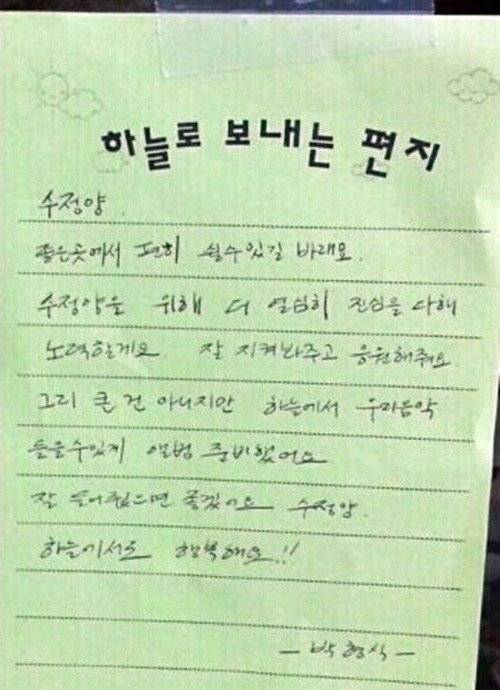 하늘로 보내는 편지
수정양.
좋은곳에서 편히 쉴수있길 바래요.
수정양을 위해 더 열심히 진심을 다해
노력할게요 잘 지켜봐주고 응원해줘요.
그리 큰 건 아니지만 하늘에서 우리음악
들을수있게 앨범 준비했어요
잘 들어줬으면 좋겠어요 수정양.
하늘에서도 행복해요!!
- 박형식 -